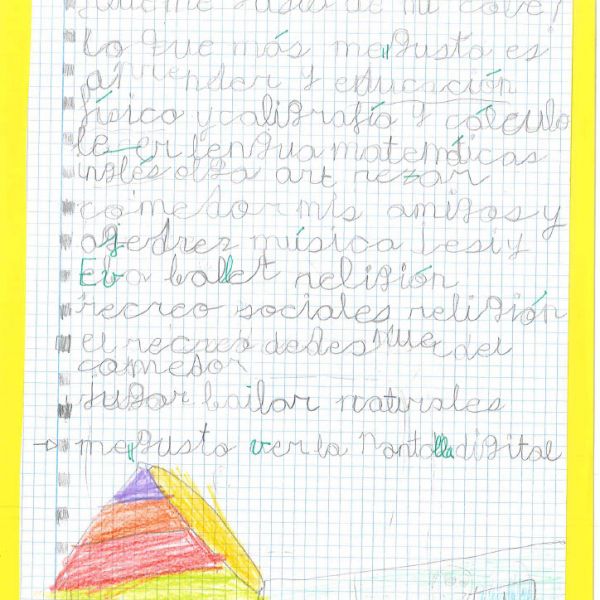 Lo que más me gusta es
aprender y educación
físico y caligrafía y cálculo
leer lengua matemáticas
inglés olga art rezar
comedor mis amigos y
ajedrez música Lesi y
Eva ballet religión
recreo sociales religión
el recreo dedes del
comedor
jugar bailar naturales
me gusto ver la pantalla digital